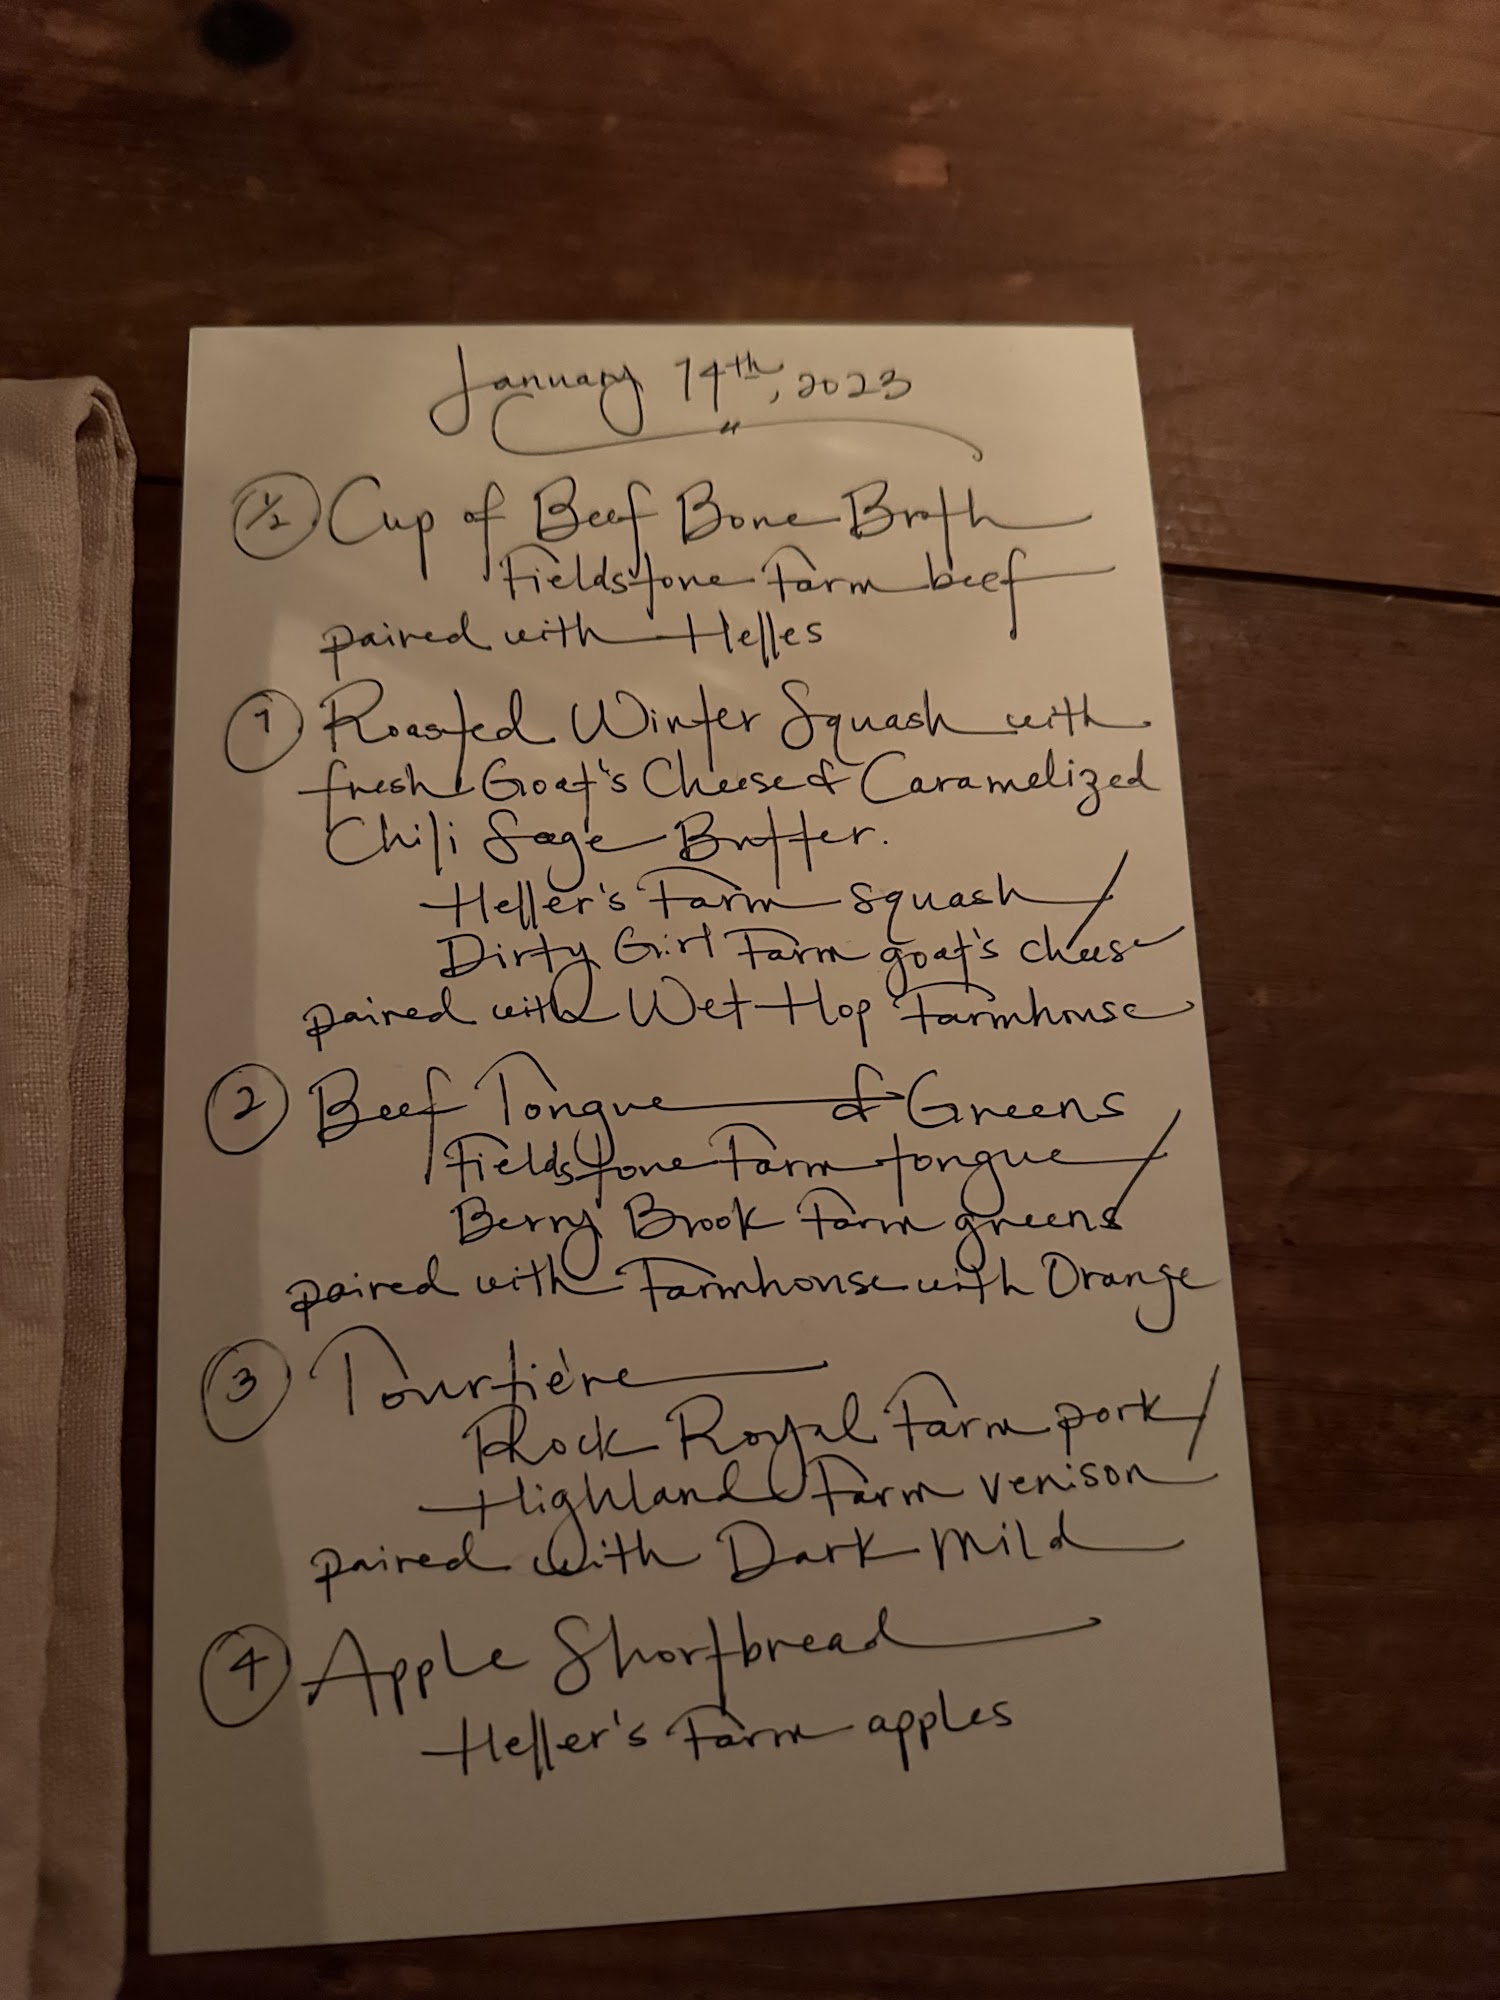 January 14th, 2023
"
1/2 Cup of Beef Bone Broth
Fieldstone Farm beef
paired with Helles
1 Roasted Winter Squash with
fresh Goat's Cheese & Caramelized
Chili Sage Butter.
Heller's Farm squash /
Dirty Girl Farm goat's cheese
paired with Wet Hop Farmhouse
2 Beef Tongue & Greens
Fieldstone Farm tongue /
Berry Brook Farm greens
paired with Farmhouse with Orange
3 Tourtière
Rock Royal Farm pork /
Highland Farm venison
paired with Dark Mild
4 Apple Shortbread
Heller's Farm apples